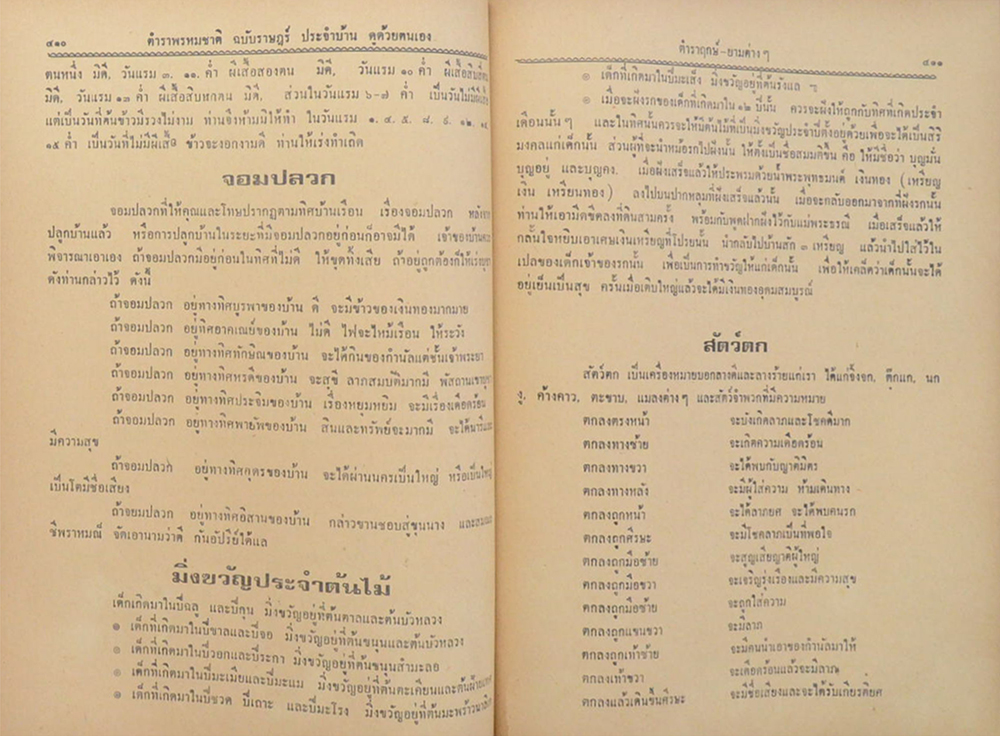 ๔๑๐ ตำราพรหมชาติ ฉบับราษฎร์ ประจำบ้าน ดูด้วยตนเอง
ตนหนึ่ง มิดี, วันแรม ๓. ๑๑ ค่ำ ผีเสื้อสองตน มิดี, วันแรม ๑๐ ค่ำ ผีเสื้อสิบ
มิดี, วันแรม ๑๓ ค่ำ ผีเสื้อสิบหกตน มิดี, ส่วนในวันแรม ๖-๗ ค่ำ เป็นวันไม่มีผีเสื้อ
แต่เป็นวันที่ต้นข้าวมีรวงไม่งาม ท่านจึงห้ามมิให้ทำ ในวันแรม ๑. ๔. ๕. ๘. ๙. ๑๒. ๑๔
๑๕ ค่ำ เป็นวันที่ไม่มีผีเสื้อ ข้าวจะงอกงามดี ท่านให้เร่งทำเถิด
จอมปลวก
จอมปลวกที่ให้คุณและโทษปรากฏตามทิศบ้านเรือน เรื่องจอมปลวก หลังจาก
ปลูกบ้านแล้ว หรือการปลูกบ้านในระยะที่มีจอมปลวกอยู่ก่อนก็อาจมีได้ เจ้าของบ้าน
พิจารณาเอาเอง ถ้าจอมปลวกมีอยู่ก่อนในทิศที่ไม่ดี ให้ขุดทิ้งเสีย ถ้าอยู่ถูกต้องก็ให้
ดังท่านกล่าวไว้ ดังนี้
ถ้าจอมปลวก อยู่ทางทิศบูรพาของบ้าน ดี จะมีข้าวของเงินทองมากมาย
ถ้าจอมปลวก อยู่ทิศอาคเณย์ของบ้าน ไม่ดี ไฟจะไหม้เรือน ให้ระวัง
ถ้าจอมปลวก อยู่ทางทิศทักษิณของบ้าน จะได้กินของกำนัลแต่ชั้นเจ้าพระยา
ถ้าจอมปลวก อยู่ทางทิศหรดีของบ้าน จะสุขี ลาภสมบัติมากมี พัสถาน
ถ้าจอมปลวก อยู่ทางทิศประจิมของบ้าน เรื่องหยุมหยิม จะมีเรื่องเดือดร้อน
ถ้าจอมปลวก อยู่ทางทิศพายัพของบ้าน สินและทรัพย์จะมากมี จะได้นารีและ
มีความสุข
ถ้าจอมปลวก อยู่ทางทิศอุดรของบ้าน จะได้ผ่านนครเป็นใหญ่ หรือเป็นใหญ่
เป็นโตมีชื่อเสียง
ถ้าจอมปลวก อยู่ทางทิศอิสานของบ้าน กล่าวขานชอบสู่ขุนนาง และสมณะ
ชีพราหมณ์ จัดเอานามว่าดี กันอัปรีย์ได้แล
มิ่งขวัญประจำต้นไม้
เด็กเกิดมาในปีฉลู และปีกุน มิ่งขวัญอยู่ที่ต้นตาลและต้นบัวหลวง
๏ เด็กที่เกิดมาในปีขาลและปีจอ มิ่งขวัญอยู่ที่ต้นขนุนและต้นบัวหลวง
๏ เด็กที่เกิดมาในปีวอกและปีระกา มิ่งขวัญอยู่ที่ต้นขนุนสำมะลอ
๏ เด็กที่เกิดมาในปีมะเมียและปีมะแม มิ่งขวัญอยู่ที่ต้นตะเคียนและต้นฝ้าย
๏ เด็กที่เกิดมาในปีชวด ปีเถาะ และปีมะโรง มิ่งขวัญอยู่ที่ต้นมะพร้าว
ตำราฤกษ์-ยามต่างๆ ๔๑๑
๏ เด็กที่เกิดมาในปีมะเส็ง มิ่งขวัญอยู่ที่ต้นรังแล ฯ
๏ เมื่อจะฝังรกของเด็กที่เกิดมาใน ๑๒ ปีนั้น ควรจะฝังให้ถูกกับทิศที่เกิดประจำ
เดือนนั้นๆ และในทิศนั้นควรจะให้มีต้นไม้ที่เป็นมิ่งขวัญประจำตั้งอยู่ด้วยเพื่อจะได้เป็นสิริ
มงคลแก่เด็กนั้น ส่วนผู้ที่จะนำหม้อรกไปฝังนั้น ให้ตั้งเป็นชื่อสมมติขึ้น คือ ให้มีชื่อว่า บุญมั่น
บุญอยู่ และบุญคง. เมื่อฝังเสร็จแล้วให้ประพรมด้วยน้ำพระพุทธมนต์ เงินทอง (เหรียญ
เงิน เหรียนทอง) ลงไปบนปากหลุมที่ฝังเสร็จแล้วนั้น เมื่อจะกลับออกมาจากที่ฝังรกนั้น
ท่านให้เอามีดขีดลงที่ดินสามครั้ง พร้อมกับพูดฝากฝังไว้กับแม่พระธรณี เมื่อเสร็จแล้วให้
กลั้นใจหยิบเอาเศษเงินเหรียญที่โปรยนั้น นำกลับไปบ้านสัก ๓ เหรียญ แล้วนำไปใส่ไว้ใน
เปลของเด็กเจ้าของรกนั้น เพื่อเป็นการทำขวัญให้แก่เด็กนั้น เพื่อให้เคล็ดว่าเด็กนั้นจะได้
อยู่เย็นเป็นสุข ครั้นเมื่อเติบใหญ่แล้วจะได้มีเงินทองอุดมสมบูรณ์
สัตว์ตก
สัตว์ตก เป็นเครื่องหมายบอกลางดีและลางร้ายแก่เรา ได้แก่จิ้งจก, ตุ๊กแก, นก
งู, ค้างคาว, ตะขาบ, แมลงต่างๆ และสัตว์จำพวกที่มีความหมาย
ตกลงตรงหน้า จะบังเกิดลาภและโชคดีมาก
ตกลงทางซ้าย จะเกิดความเดือดร้อน
ตกลงทางขวา จะได้พบกับญาติมิตร
ตกลงทางหลัง จะมีผู้ใส่ความ ห้ามเดินทาง
ตกลงถูกหน้า จะได้ลาภยศ จะได้พบคนรก
ตกลงถูกศีรษะ จะมีโชคลาภเป็นที่พอใจ
ตกลงถูกมือซ้าย จะสูญเสียญาติผู้ใหญ่
ตกลงถูกมือขวา จะเจริญรุ่งเรืองและมีความสุข
ตกลงถูกมือซ้าย จะถูกใส่ความ
ตกลงถูกแขนขวา จะมีลาภ
ตกลงถูกเท้าซ้าย จะมีคนนำเอาของกำนัลมาให้
ตกลงเท้าขวา จะเดือดร้อนแล้วจะมีลาภ
ตกลงแล้วเดินขึ้นศีรษะ จะมีชื่อเสียงและจะได้รับเกียรติยศ